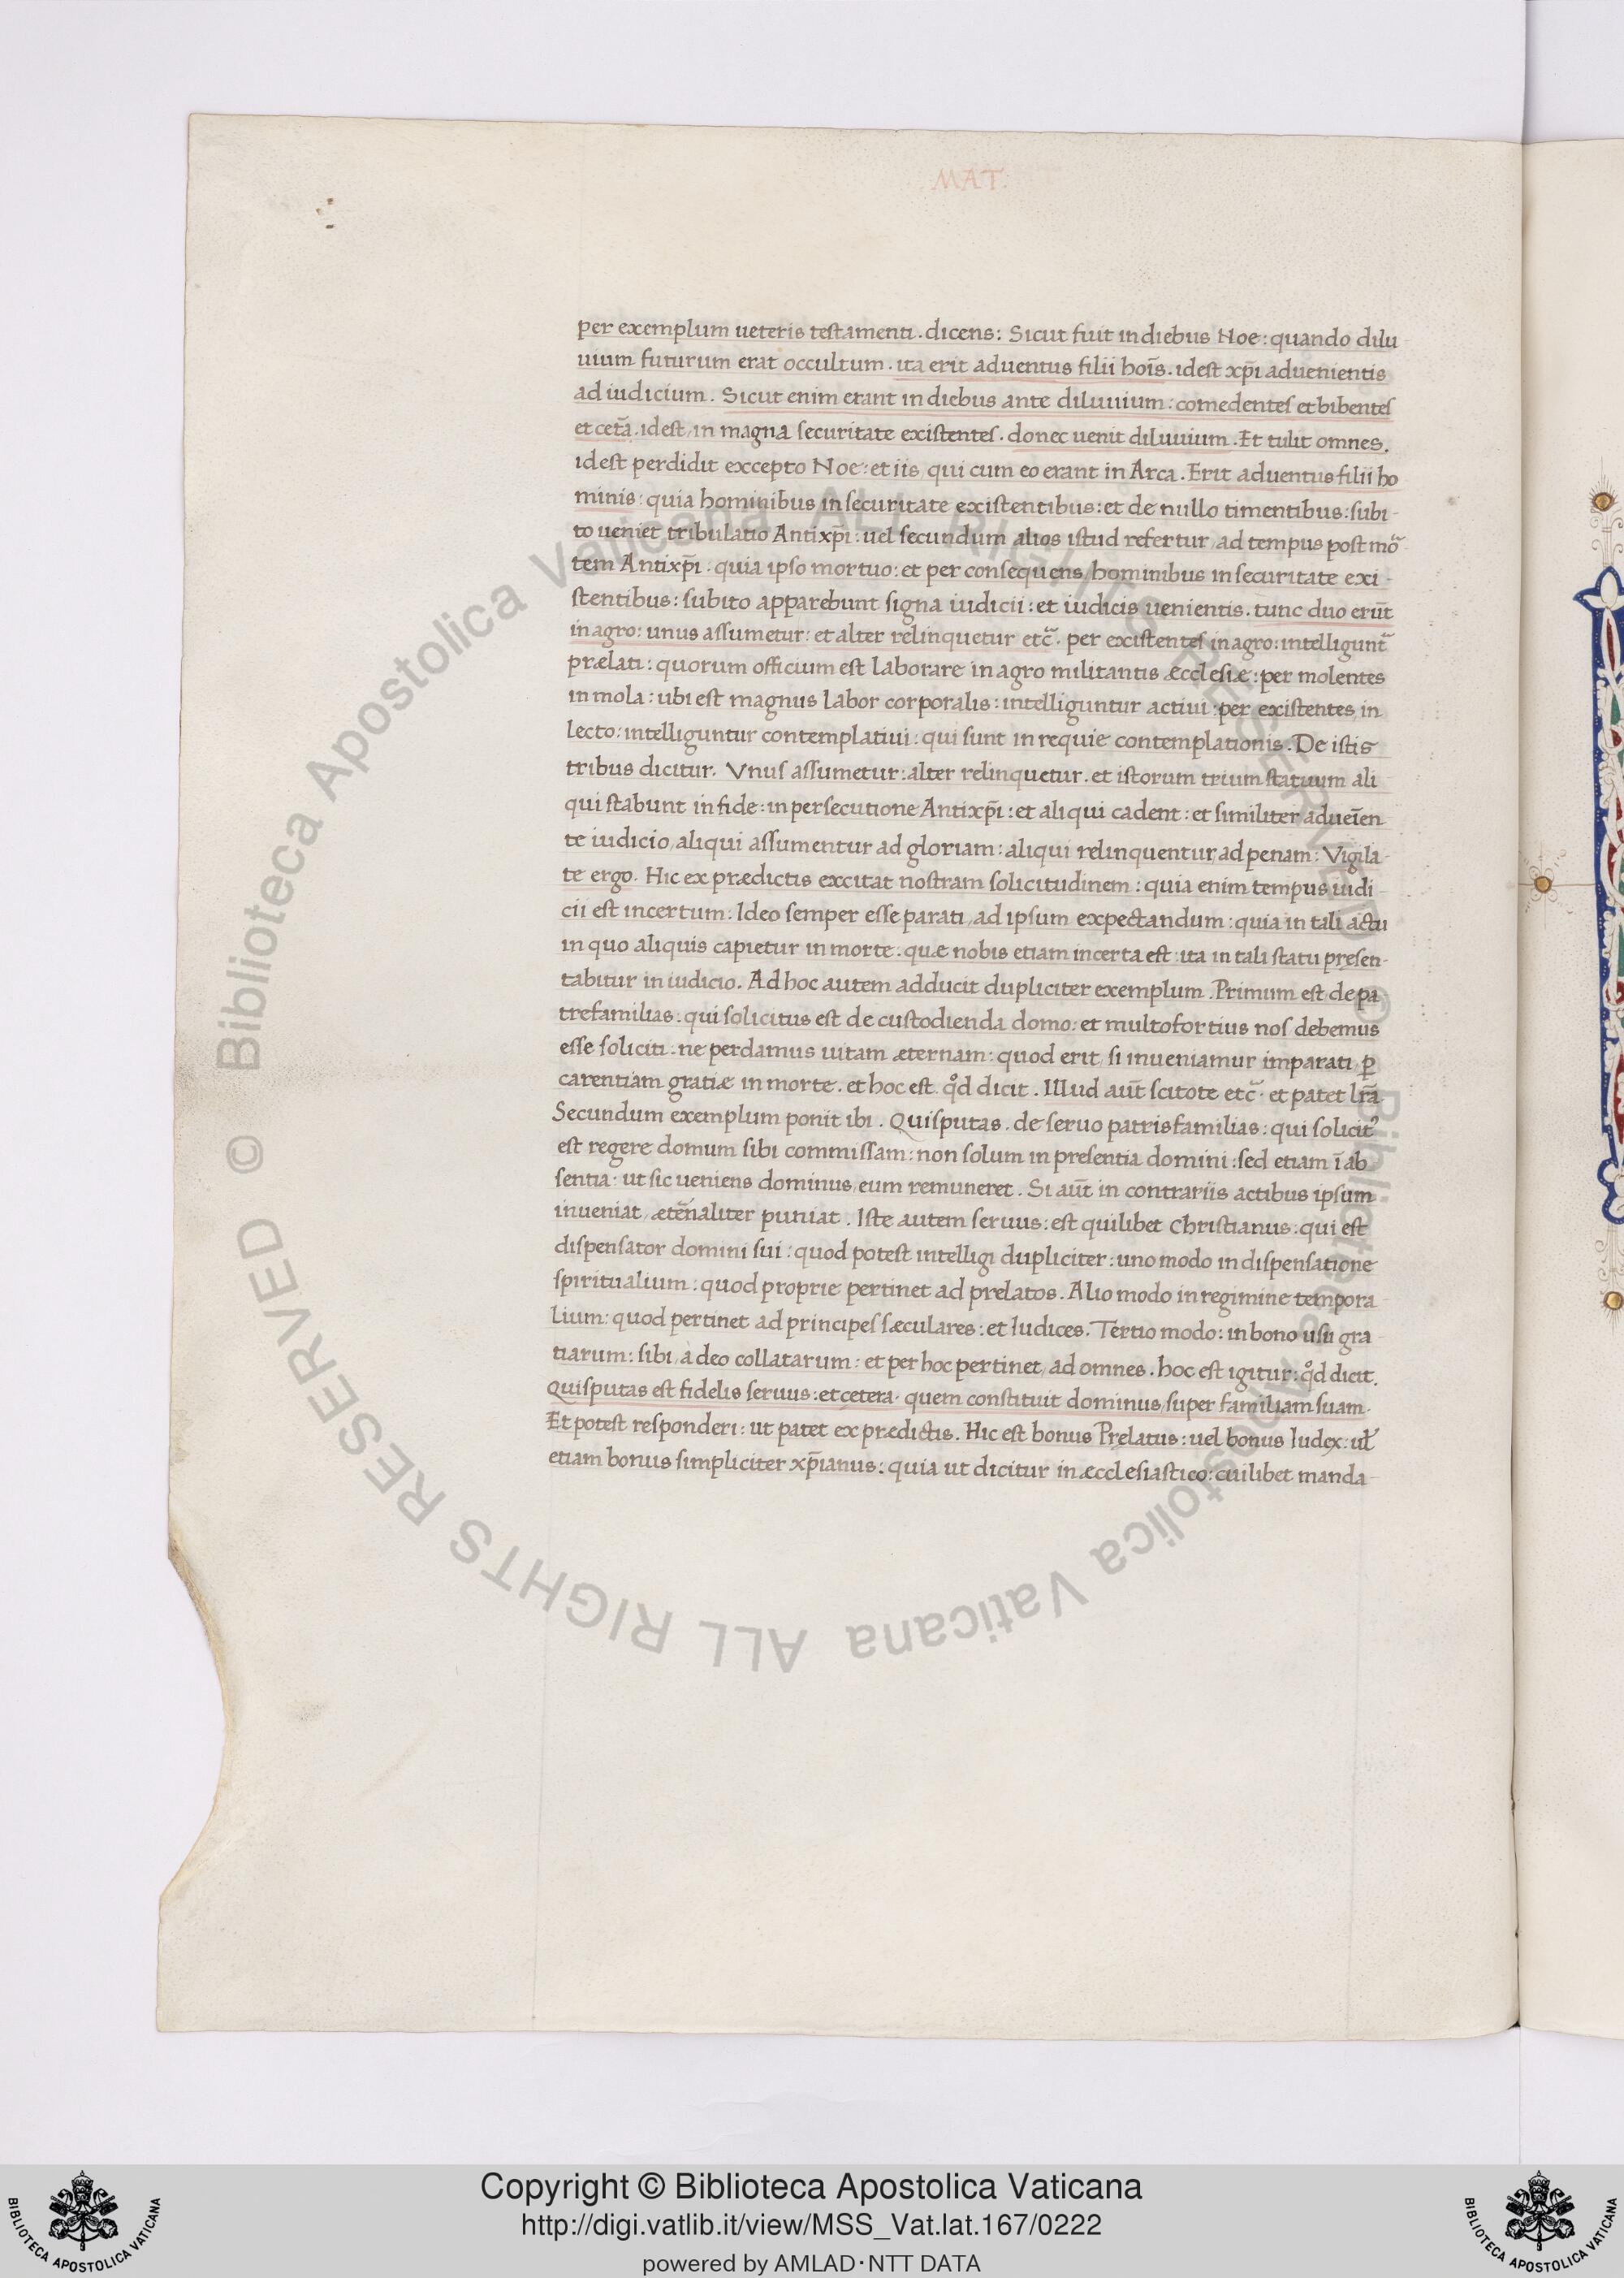 MAT.
per exemplum ueteris testamenti. dicens: Sicut fuit in diebus Noe: quando dilu
uium futurum erat occultum. ita erit aduentus filii hoĩs. idest xp̃i aduenientis
ad iudicium. Sicut enim erant in diebus ante diluuium: comedentes et bibentes
et cetã. idest, in magna securitate existentes. donec uenit diluuium. Et tulit omnes.
idest perdidit excepto Noe: et iis, qui cum eo erant in Arca. Erit aduentus filii ho
minis: quia hominibus in securitate existentibus: et de nullo timentibus: subi-
to ueniet tribulatio Antixp̃i: uel secundum alios istud refertur, ad tempus post mõ-
tem Antixp̃i: quia ipso mortuo: et per consequens, hominibus in securitate exi-
stentibus: subito apparebunt signa iudicii: et iudicis uenientis. tunc duo erũt
in agro: unus assumetur: et alter relinquetur etc̃. per existentes in agro: intelligunt̃
prælati: quorum officium est laborare in agro militantis æcclesiæ: per molentes
in mola: ubi est magnus labor corporalis: intelliguntur actiui: per existentes, in
lecto: intelliguntur contemplatiui: qui sunt in requie contemplationis. De istis
tribus dicitur. Vnus assumetur: alter relinquetur. et istorum trium statuum ali
qui stabunt in fide: in persecutione Antixp̃i: et aliqui cadent: et similiter, adueĩen
te iudicio, aliqui assumentur ad gloriam: aliqui relinquentur, ad penam: Vigila-
te ergo. Hic ex prædictis excitat nostram solicitudinem: quia enim tempus iudi-
cii est incertum: Ideo semper esse parati, ad ipsum expectandum: quia in tali actu
in quo aliquis capietur in morte. quæ nobis etiam incerta est: ita in tali statu presen-
tabitur in iudicio. Ad hoc autem adducit dupliciter exemplum. Primum est de pa
trefamilias: qui solicitus est de custodienda domo: et multofortius nos debemus
esse soliciti: ne perdamus uitam æternam: quod erit, si inueniamur imparati, ꝑ
carentiam gratiæ in morte. et hoc est, qͦd dicit. Illud aũt scitote etc̃. et patet lrã.
Secundum exemplum ponit ibi. Quisputas. de seruo patrisfamilias: qui solicitꝰ
est regere domum sibi commissam: non solum in presentia domini: sed etiam ĩ ab
sentia: ut sic ueniens dominus, eum remuneret. Si aũt in contrariis actibus ipsum
inueniat, ætẽnaliter puniat. Iste autem seruus: est quilibet Christianus: qui est
dispensator domini sui: quod potest intelligi dupliciter: uno modo in dispensatione
spiritualium: quod proprie pertinet ad prelatos. Alio modo in regimine tempora
lium: quod pertinet ad principes sæculares: et Iudices. Tertio modo: in bono usu gra
tiarum: sibi, a deo collatarum: et per hoc pertinet, ad omnes. hoc est igitur: qͦd dicit.
Quisputas est fidelis seruus: et cętera. quem constituit dominus, super familiam suam.
Et potest responderi: ut patet ex prædictis. Hic est bonus Pręlatus: uel bonus Iudex: uł
etiam bonus simpliciter xp̃ianus: quia ut dicitur in æcclesiastico: cuilibet manda-
© Biblioteca Apostolica Vaticana ALL RIGHTS RESERVED © Biblioteca Apostolica Vaticana ALL RIGHTS RESERVED
BIBLIOTECA APOSTOLICA VATICANA
Copyright © Biblioteca Apostolica Vaticana
http://digi.vatlib.it/view/MSS_Vat.lat.167/0222
powered by AMLAD·NTT DATA
BIBLIOTECA APOSTOLICA VATICANA